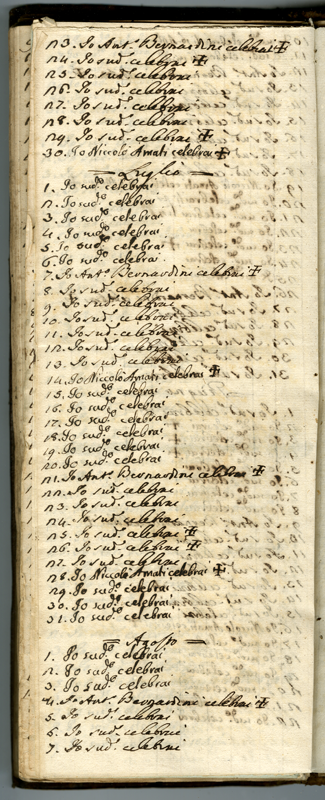 23. Io Ant.º Bernardini celebrai ✠
24. Io sud.º celebrai ✠
25. Io sud.º celebrai
26. Io sud.º celebrai
27. Io sud.º celebrai
28. Io sud.º celebrai
29. Io sud.º celebrai ✠
30. Io Niccolò Amati celebrai ✠
= Luglio =
1. Io sud.º celebrai
2. Io sud.º celebrai
3. Io sud.º celebrai
4. Io sud.º celebrai
5. Io sud.º celebrai
6. Io sud.º celebrai
7. Io Ant.º Bernardini celebrai ✠
8. Io sud.º celebrai
9. Io sud.º celebrai
10. Io sud.º celebrai
11. Io sud.º celebrai
12. Io sud.º celebrai
13. Io sud.º celebrai
14. Io Niccolò Amati celebrai ✠
15. Io sud.º celebrai
16. Io sud.º celebrai
17. Io sud.º celebrai
18. Io sud.º celebrai
19. Io sud.º celebrai
20. Io sud.º celebrai
21. Io Ant.º Bernardini celebrai ✠
22. Io sud.º celebrai
23. Io sud.º celebrai
24. Io sud.º celebrai
25. Io sud.º celebrai ✠
26. Io sud.º celebrai ✠
27. Io sud.º celebrai
28. Io Niccolò Amati celebrai ✠
29. Io sud.º celebrai
30. Io sud.º celebrai
31. Io sud.º celebrai
= Agosto =
1. Io sud.º celebrai
2. Io sud.º celebrai
3. Io sud.º celebrai
4. Io Ant.º Bernardini celebrai ✠
5. Io sud.º celebrai
6. Io sud.º celebrai
7. Io sud.º celebrai